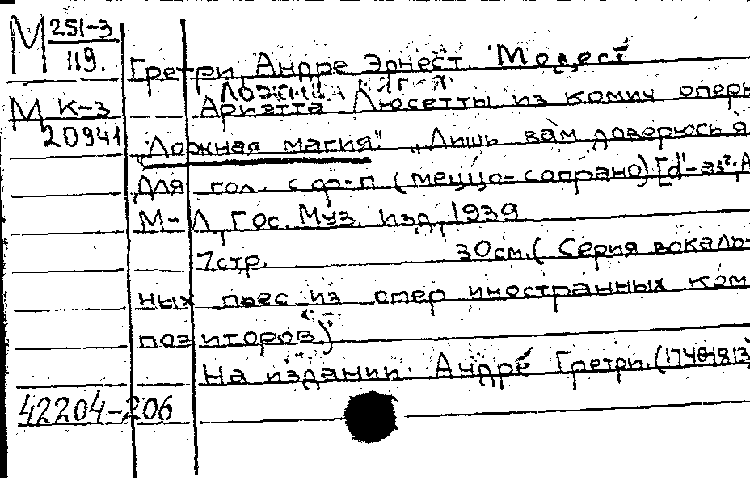 М 251-3
119.
Гретри, Андре Эрнест Модест
М К-3
20941
Ариэтта Люсетты из комич. оперы
"Ложная магия". "Лишь вам доверюсь я
для гол. с ф-п (меццо-сопрано)
М-Л, Гос. Муз. Изд, 1939
7стр. 30см. (Серия вокаль-
ных пьес из опер иностранных ком
позиторов)
На издании: Андре Гретри. (1748-1813)
42204-206